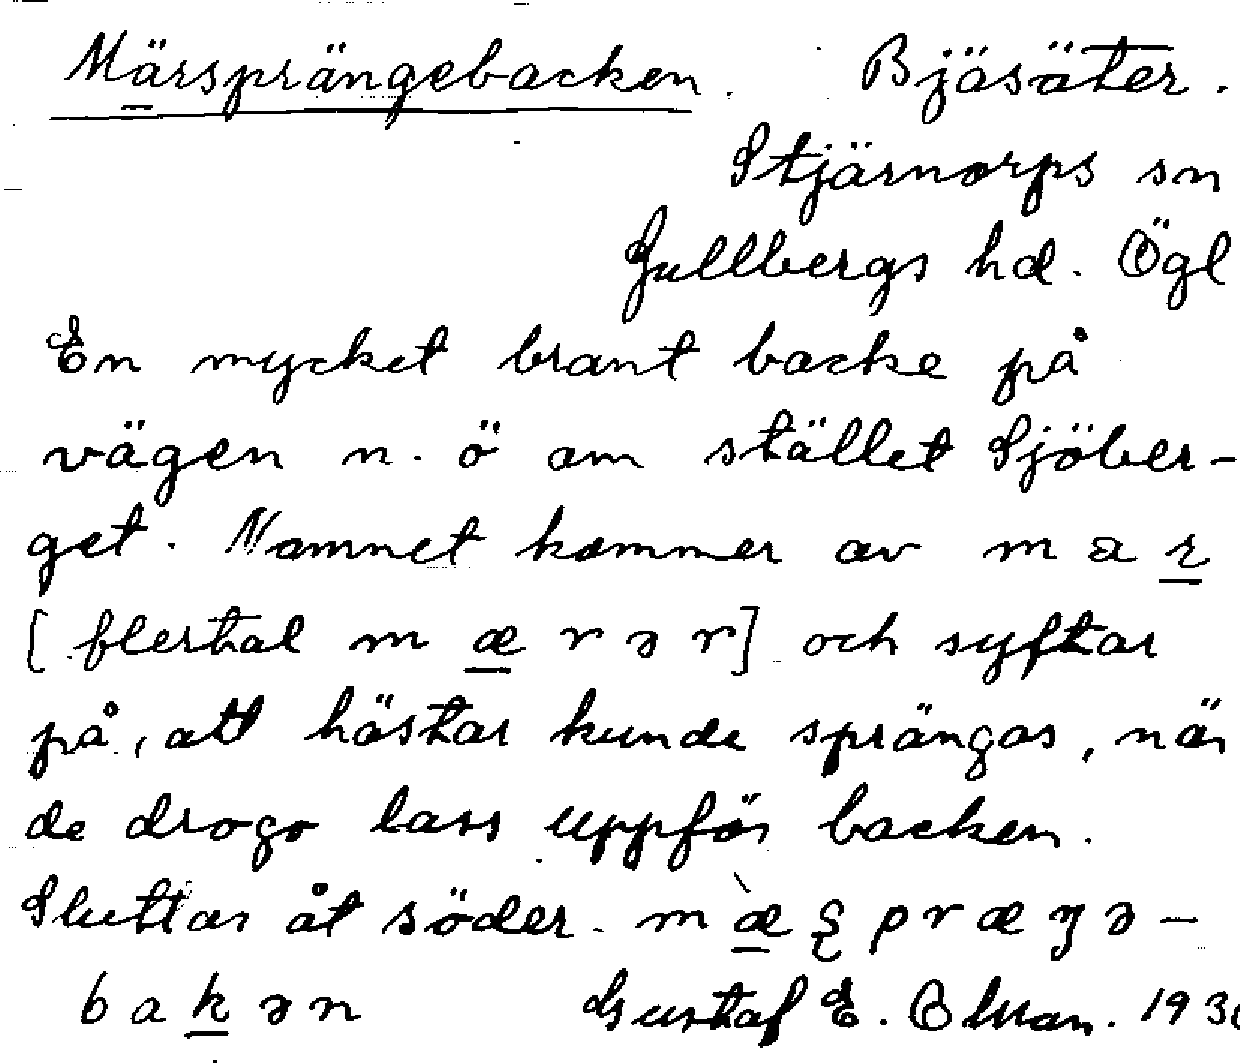 Märsprängebacken. Bjäsäter.
Stjärnorps sn
Gullbergs hd. Ögl
En mycket brant backe på
vägen n. ö om stället Sjöber-
get. Namnet kommer av m a r
[flertal m æ r ə r] och syftar
på, att hästar kunde sprängas, när
de drogo lass uppför backen.
Sluttar åt söder. m æ̀ ʂ p r æ ŋ ə –
b a k ə n Gustaf E.